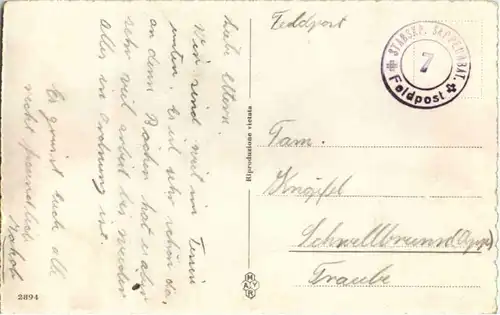 Feldpost
STABSKP. SAPPEURBAT.
7
Feldpost
Liebe Eltern.
Wir sind weit im Tessin
unten. Es ist sehr schön da,
an dem Bächen hat es aber
sehr viel arbeit bis wieder
alles in ordnung ist.
Es grüsst euch alle
recht freundlich
Jakob
Fam.
Knöpfel
Schwellbrunn (Appz)
Traube
Riproduzione vietata
MAYR
2894